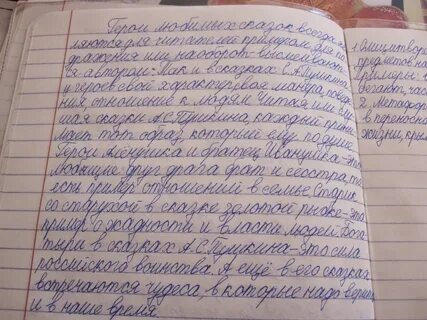 Герои любимых сказок всегда яв
ляются для читателей примером для по
дражения или наоборот высмеивают
ся автором. Так и в сказках С.А.Пушкин
у героев свой характер, своя манера поведе
ния, отношение к людям. Читая или слу
шая сказки А.С.Пушкина, каждый прини
мает тот образ который ему по душе.
Герои Алёнушка и братец Иванушка-это
любящие друг друга брат и сестра, то
есть пример отношений в семье. Старик
со старухой в сказке золотой рыбке-это
пример о жадности и власти людей. Бога
тыри в сказках А.С.Пушкина-это сила
российского воинства. А ещё в его сказках
встречаются чудеса, в которые надо верить
и в наше время.
1. Олицетвор
предметов на
Примеры:
бегают, час
2. Метафор
в переносн
жизни, кры